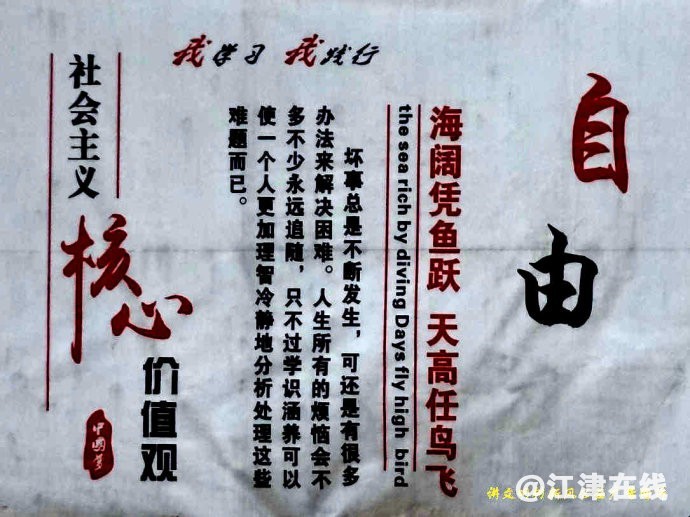 我学习 我践行
自由
海阔凭鱼跃 天高任鸟飞
the sea rich by diving Days fly high bird
坏事总是不断发生，可还是有很多
办法来解决困难。人生所有的烦恼会不
多不少永远追随，只不过学识涵养可以
使一个人更加理智冷静地分析处理这些
难题而已。
社会主义
核心
价值观
中国梦
@江津在线